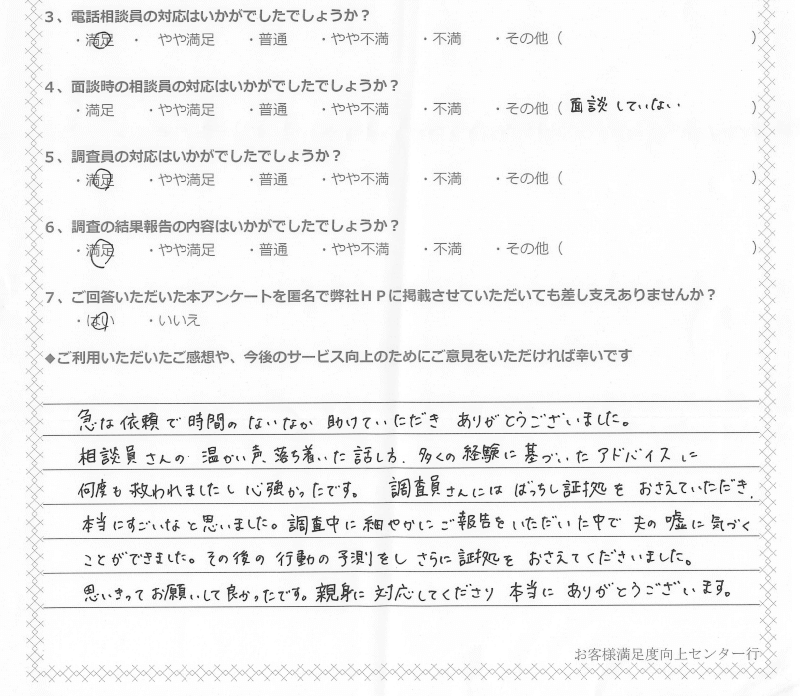 3、電話相談員の対応はいかがでしたでしょうか？
・満足 ・ やや満足 ・普通 ・やや不満 ・不満 ・その他（ ）
4、面談時の相談員の対応はいかがでしたでしょうか？
・満足 ・やや満足 ・普通 ・やや不満 ・不満 ・その他（ 面談していない ）
5、調査員の対応はいかがでしたでしょうか？
・満足 ・やや満足 ・普通 ・やや不満 ・不満 ・その他（ ）
6、調査の結果報告の内容はいかがでしたでしょうか？
・満足 ・やや満足 ・普通 ・やや不満 ・不満 ・その他（ ）
7、ご回答いただいた本アンケートを匿名で弊社HPに掲載させていただいても差し支えありませんか？
・はい ・いいえ
◆ご利用いただいたご感想や、今後のサービス向上のためにご意見をいただければ幸いです
急な依頼で時間のないなか 助けていただき ありがとうございました。
相談員さんの 温かい声、落ち着いた話し方、多くの経験に基づいたアドバイスに
何度も救われましたし心強かったです。 調査員さんには ばっちし証拠を おさえていただき、
本当にすごいなと思いました。調査中に細やかにご報告をいただいた中で 夫の嘘に気づく
ことができました。その後の行動の予測をし さらに証拠を おさえてくださいました。
思いきってお願いして良かったです。親身に対応してくださり 本当に ありがとうございます。
お客様満足度向上センター行